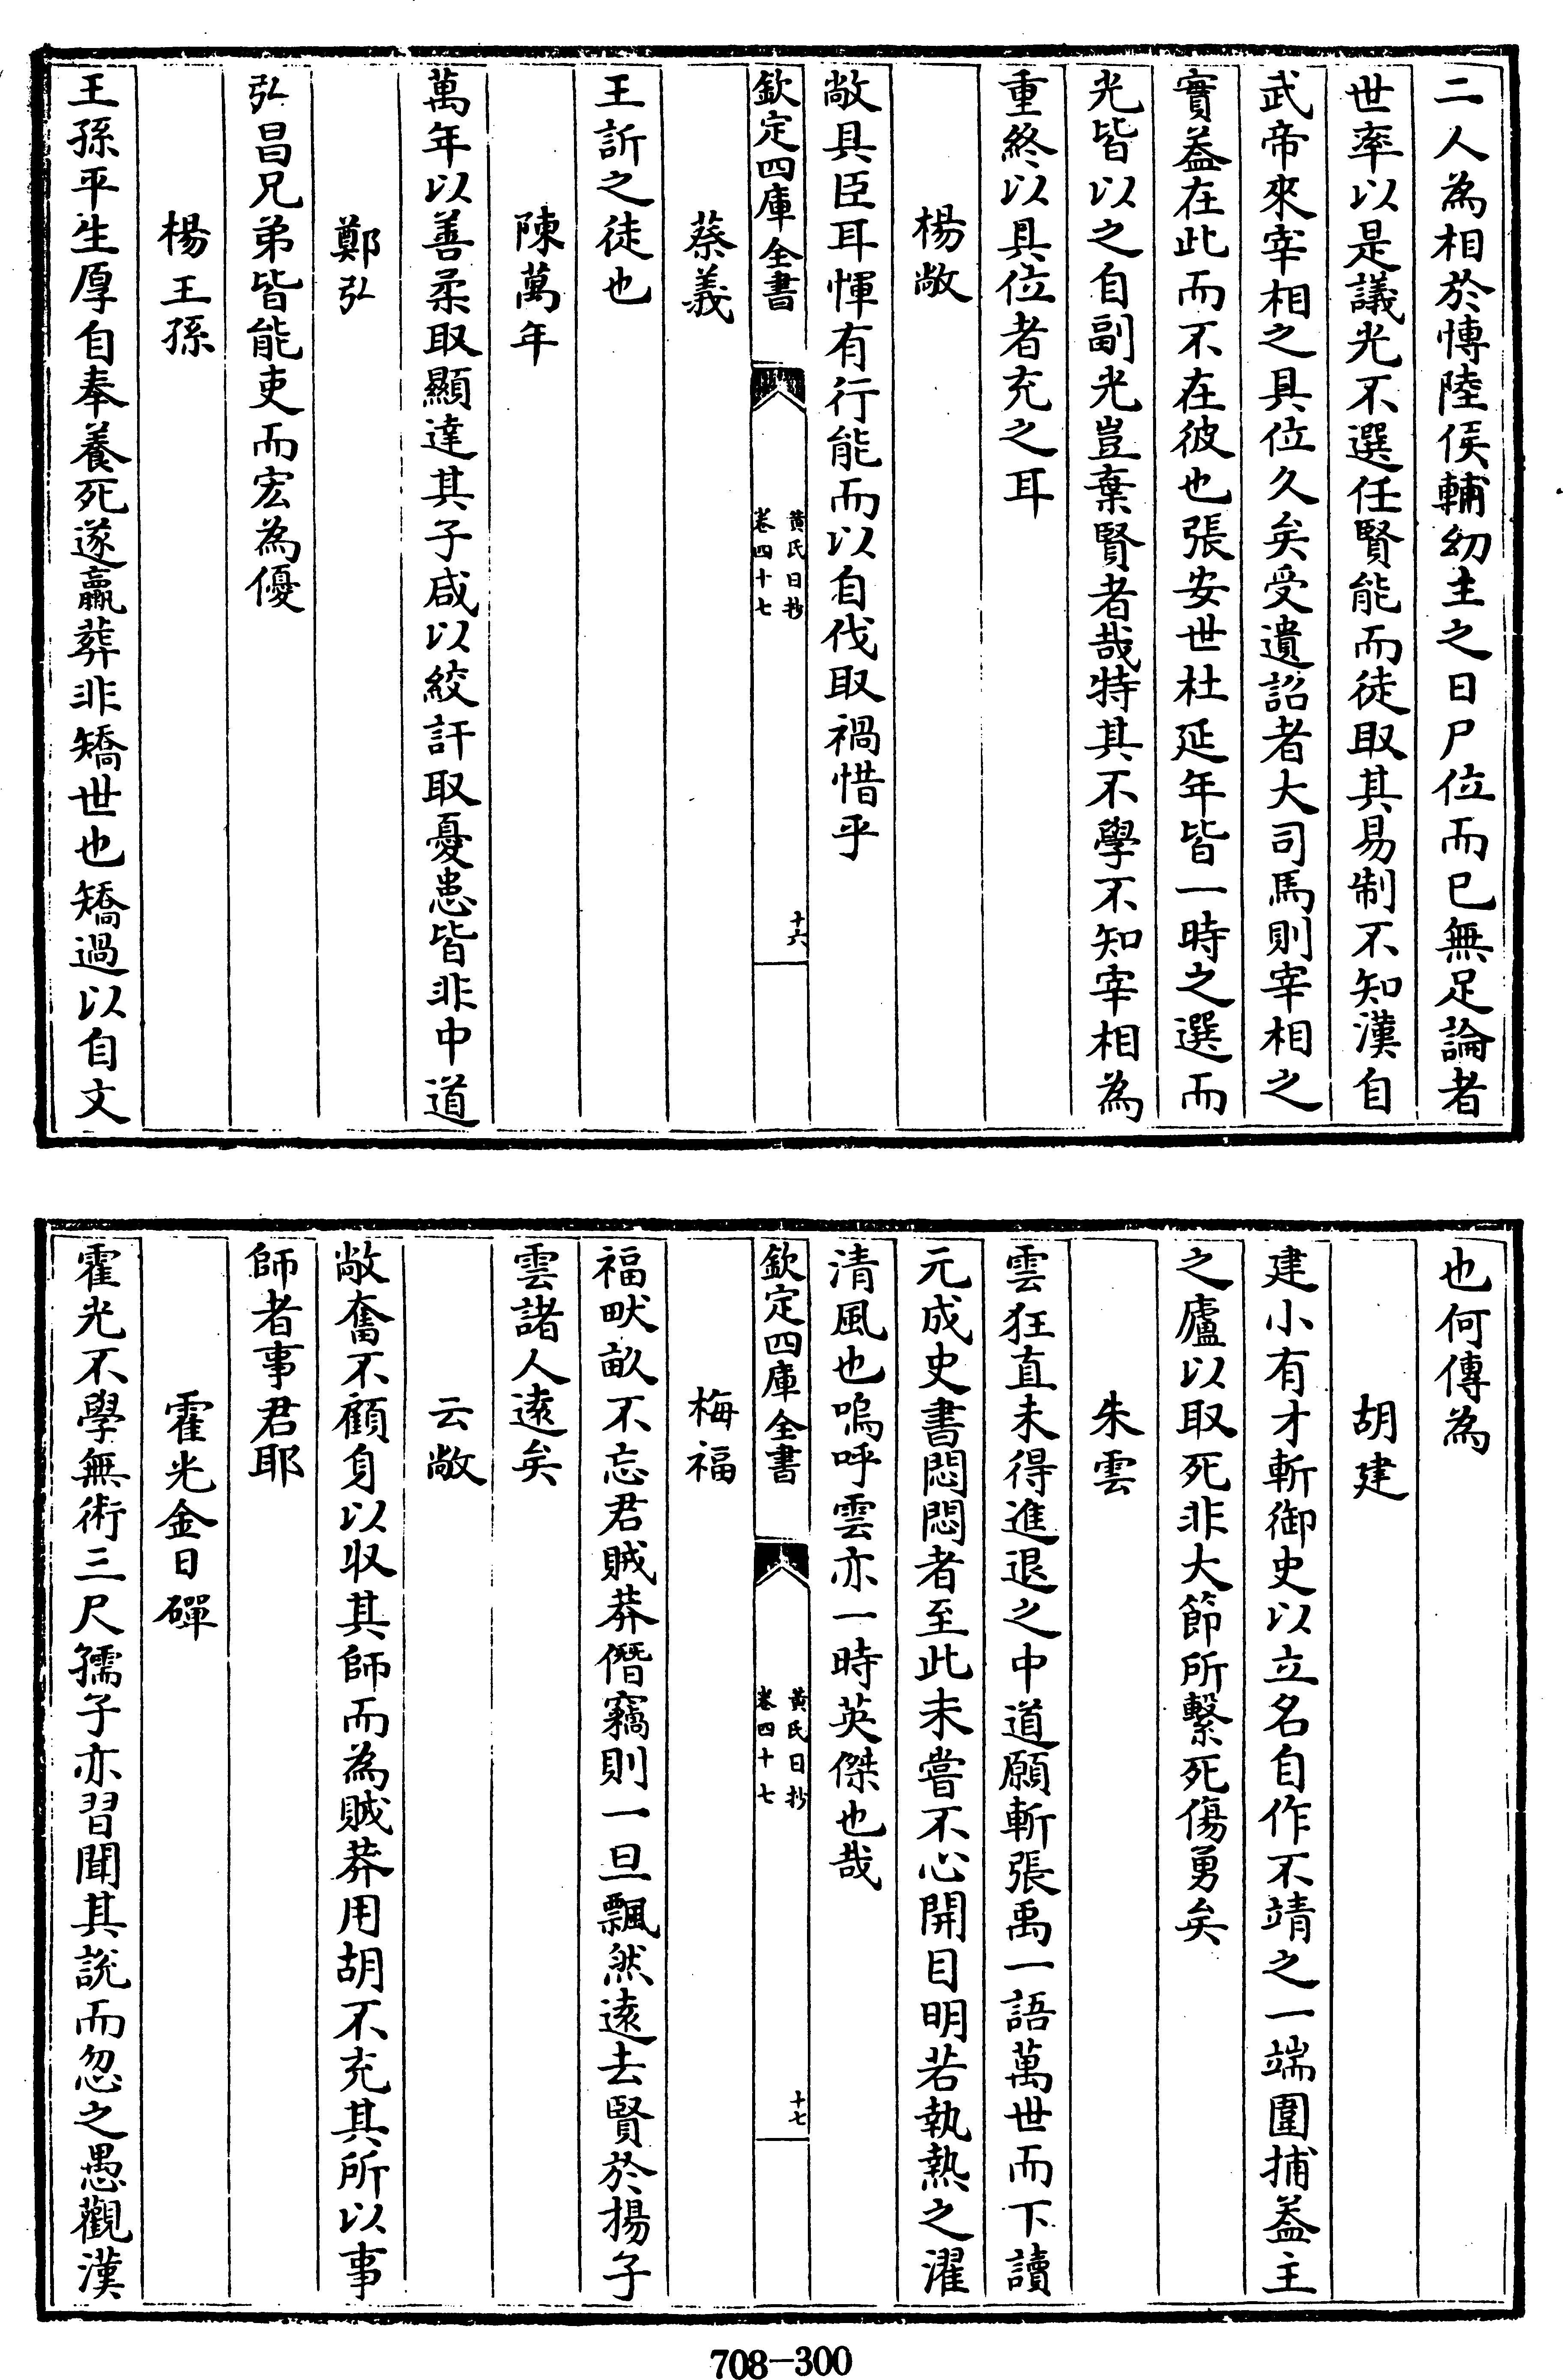 二人為相於愽陸侯輔幼主之日尸位而已無足論者
世率以是議光不選任賢能而徒取其易制不知漢自
武帝來宰相之具位久矣受遺詔者大司馬則宰相之
實葢在此而不在彼也張安世杜延年皆一時之選而
光皆以之自副光豈棄賢者哉特其不學不知宰相為
重終以具位者充之耳
楊敞
敞具臣耳惲有行能而以自伐取禍惜乎
欽定四庫全書
黃氏日抄
卷四十七
十六
蔡義
王訢之徒也
陳萬年
萬年以善柔取顯達其子咸以絞訐取憂患皆非中道
鄭弘
弘昌兄弟皆能吏而宏為優
楊王孫
王孫平生厚自奉養死遂臝葬非矯世也矯過以自文
也何傳為
胡建
建小有才斬御史以立名自作不靖之一端圍捕葢主
之廬以取死非大節所繫死傷勇矣
朱雲
雲狂直未得進退之中道願斬張禹一語萬世而下讀
元成史書悶悶者至此未嘗不心開目明若執熱之濯
清風也嗚呼雲亦一時英傑也哉
欽定四庫全書
黃氏日抄
卷四十七
十七
梅福
福畎畝不忘君賊莽僭竊則一旦飄然遠去賢於揚子
雲諸人遠矣
云敞
敞奮不顧身以收其師而為賊莽用胡不充其所以事
師者事君耶
霍光金日磾
霍光不學無術三尺孺子亦習聞其說而忽之愚觀漢
708-300